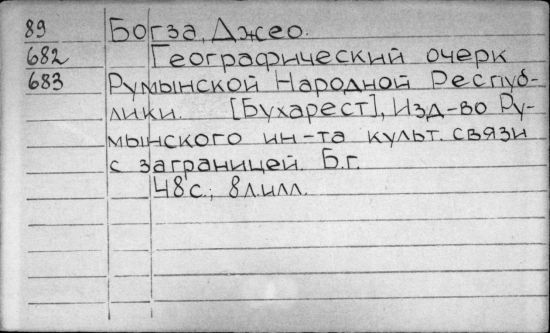 89 Богза, Джео.
682 Географический очерк
683 Румынской Народной Респуб-
лики. [Бухарест], Изд-во Ру-
мынского ин-та культ. связи
с заграницей. Б.г.
48с.; 8л.илл.